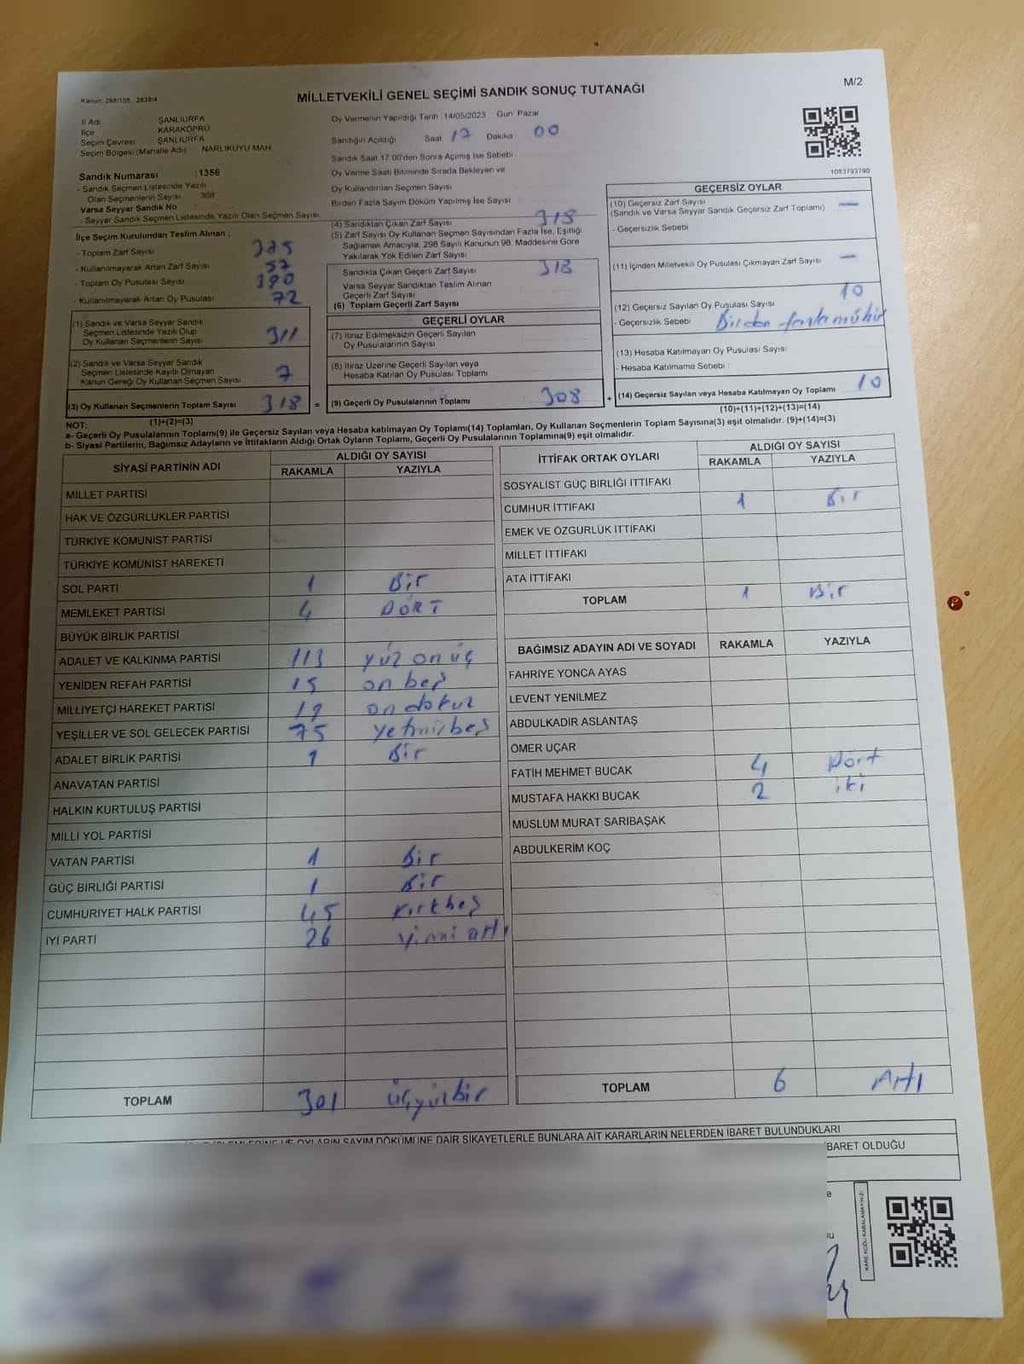 M/2
MİLLETVEKİLİ GENEL SEÇİMİ SANDIK SONUÇ TUTANAĞI
İl Adı ŞANLIURFA
İlçe KARAKÖPRÜ
Seçim Çevresi ŞANLIURFA
Seçim Bölgesi (Mahalle Adı) NARLIKUYU MAH.
Oy Vermenin Yapıldığı Tarih 14/05/2023 Gün Pazar
Sandığın Açıldığı Saat 17 Dakika 00
Sandık Saat 17.00'den Sonra Açılmış İse Sebebi
Oy Verme Saati Bitiminde Sırada Bekleyen ve
Oy Kullandırılan Seçmen Sayısı
Birden Fazla Sayım Döküm Yapılmış İse Sayısı
1083793790
Sandık Numarası : 1356
- Sandık Seçmen Listesinde Yazılı
Olan Seçmenlerin Sayısı 368
Varsa Seyyar Sandık No
- Seyyar Sandık Seçmen Listesinde Yazılı Olan Seçmen Sayısı
İlçe Seçim Kurulundan Teslim Alınan ;
- Toplam Zarf Sayısı 375
- Kullanılmayarak Artan Zarf Sayısı 57
- Toplam Oy Pusulası Sayısı 390
- Kullanılmayarak Artan Oy Pusulası 72
(1) Sandık ve Varsa Seyyar Sandık
Seçmen Listesinde Yazılı Olup
Oy Kullanan Seçmenlerin Sayısı 311
(2) Sandık ve Varsa Seyyar Sandık
Seçmen Listesinde Kayıtlı Olmayan
Kanun Gereği Oy Kullanan Seçmen Sayısı 7
(3) Oy Kullanan Seçmenlerin Toplam Sayısı 318 =
(1)+(2)=(3)
(4) Sandıktan Çıkan Zarf Sayısı 318
(5) Zarf Sayısı Oy Kullanan Seçmen Sayısından Fazla İse, Eşitliği
Sağlamak Amacıyla, 298 Sayılı Kanunun 98. Maddesine Göre
Yakılarak Yok Edilen Zarf Sayısı
Sandıkta Çıkan Geçerli Zarf Sayısı 318
Varsa Seyyar Sandıktan Teslim Alınan
Geçerli Zarf Sayısı
(6) Toplam Geçerli Zarf Sayısı
GEÇERLİ OYLAR
(7) İtiraz Edilmeksizin Geçerli Sayılan
Oy Pusulalarının Sayısı
(8) İtiraz Üzerine Geçerli Sayılan veya
Hesaba Katılan Oy Pusulası Toplamı
(9) Geçerli Oy Pusulalarının Toplamı 308 +
GEÇERSİZ OYLAR
(10) Geçersiz Zarf Sayısı
(Sandık ve Varsa Seyyar Sandık Geçersiz Zarf Toplamı) —
- Geçersizlik Sebebi
(11) İçinden Milletvekili Oy Pusulası Çıkmayan Zarf Sayısı —
(12) Geçersiz Sayılan Oy Pusulası Sayısı 10
- Geçersizlik Sebebi Birden fazla mühür
(13) Hesaba Katılmayan Oy Pusulası Sayısı
- Hesaba Katılmama Sebebi :
(14) Geçersiz Sayılan veya Hesaba Katılmayan Oy Toplamı 10
(10)+(11)+(12)+(13)=(14)
NOT:
a- Geçerli Oy Pusulalarının Toplamı(9) ile Geçersiz Sayılan veya Hesaba katılmayan Oy Toplamı(14) Toplamları, Oy Kullanan Seçmenlerin Toplam Sayısına(3) eşit olmalıdır. (9)+(14)=(3)
b- Siyasi Partilerin, Bağımsız Adayların ve İttifakların Aldığı Ortak Oyların Toplamı, Geçerli Oy Pusulalarının Toplamına(9) eşit olmalıdır.
SİYASİ PARTİNİN ADI ALDIĞI OY SAYISI
RAKAMLA YAZIYLA
MİLLET PARTİSİ
HAK VE ÖZGÜRLÜKLER PARTİSİ
TÜRKİYE KOMÜNİST PARTİSİ
TÜRKİYE KOMÜNİST HAREKETİ
SOL PARTİ 1 Bir
MEMLEKET PARTİSİ 4 DÖRT
BÜYÜK BİRLİK PARTİSİ
ADALET VE KALKINMA PARTİSİ 113 yüz on üç
YENİDEN REFAH PARTİSİ 15 on beş
MİLLİYETÇİ HAREKET PARTİSİ 19 on dokuz
YEŞİLLER VE SOL GELECEK PARTİSİ 75 yetmişbeş
ADALET BİRLİK PARTİSİ 1 Bir
ANAVATAN PARTİSİ
HALKIN KURTULUŞ PARTİSİ
MİLLİ YOL PARTİSİ
VATAN PARTİSİ 1 Bir
GÜÇ BİRLİĞİ PARTİSİ 1 Bir
CUMHURİYET HALK PARTİSİ 45 Kırkbeş
İYİ PARTİ 26 yirmi altı
TOPLAM 301 üçyüzbir
İTTİFAK ORTAK OYLARI ALDIĞI OY SAYISI
RAKAMLA YAZIYLA
SOSYALİST GÜÇ BİRLİĞİ İTTİFAKI
CUMHUR İTTİFAKI 1 Bir
EMEK VE ÖZGÜRLÜK İTTİFAKI
MİLLET İTTİFAKI
ATA İTTİFAKI
TOPLAM 1 Bir
BAĞIMSIZ ADAYIN ADI VE SOYADI RAKAMLA YAZIYLA
FAHRİYE YONCA AYAS
LEVENT YENİLMEZ
ABDULKADİR ASLANTAŞ
ÖMER UÇAR
FATİH MEHMET BUCAK 4 Dört
MUSTAFA HAKKI BUCAK 2 iki
MÜSLÜM MURAT SARIBAŞAK
ABDULKERİM KOÇ
TOPLAM 6 Altı
OYLARIN SAYIM DÖKÜMÜNE DAİR ŞİKAYETLERLE BUNLARA AİT KARARLARIN NELERDEN İBARET BULUNDUKLARI
İBARET OLDUĞU